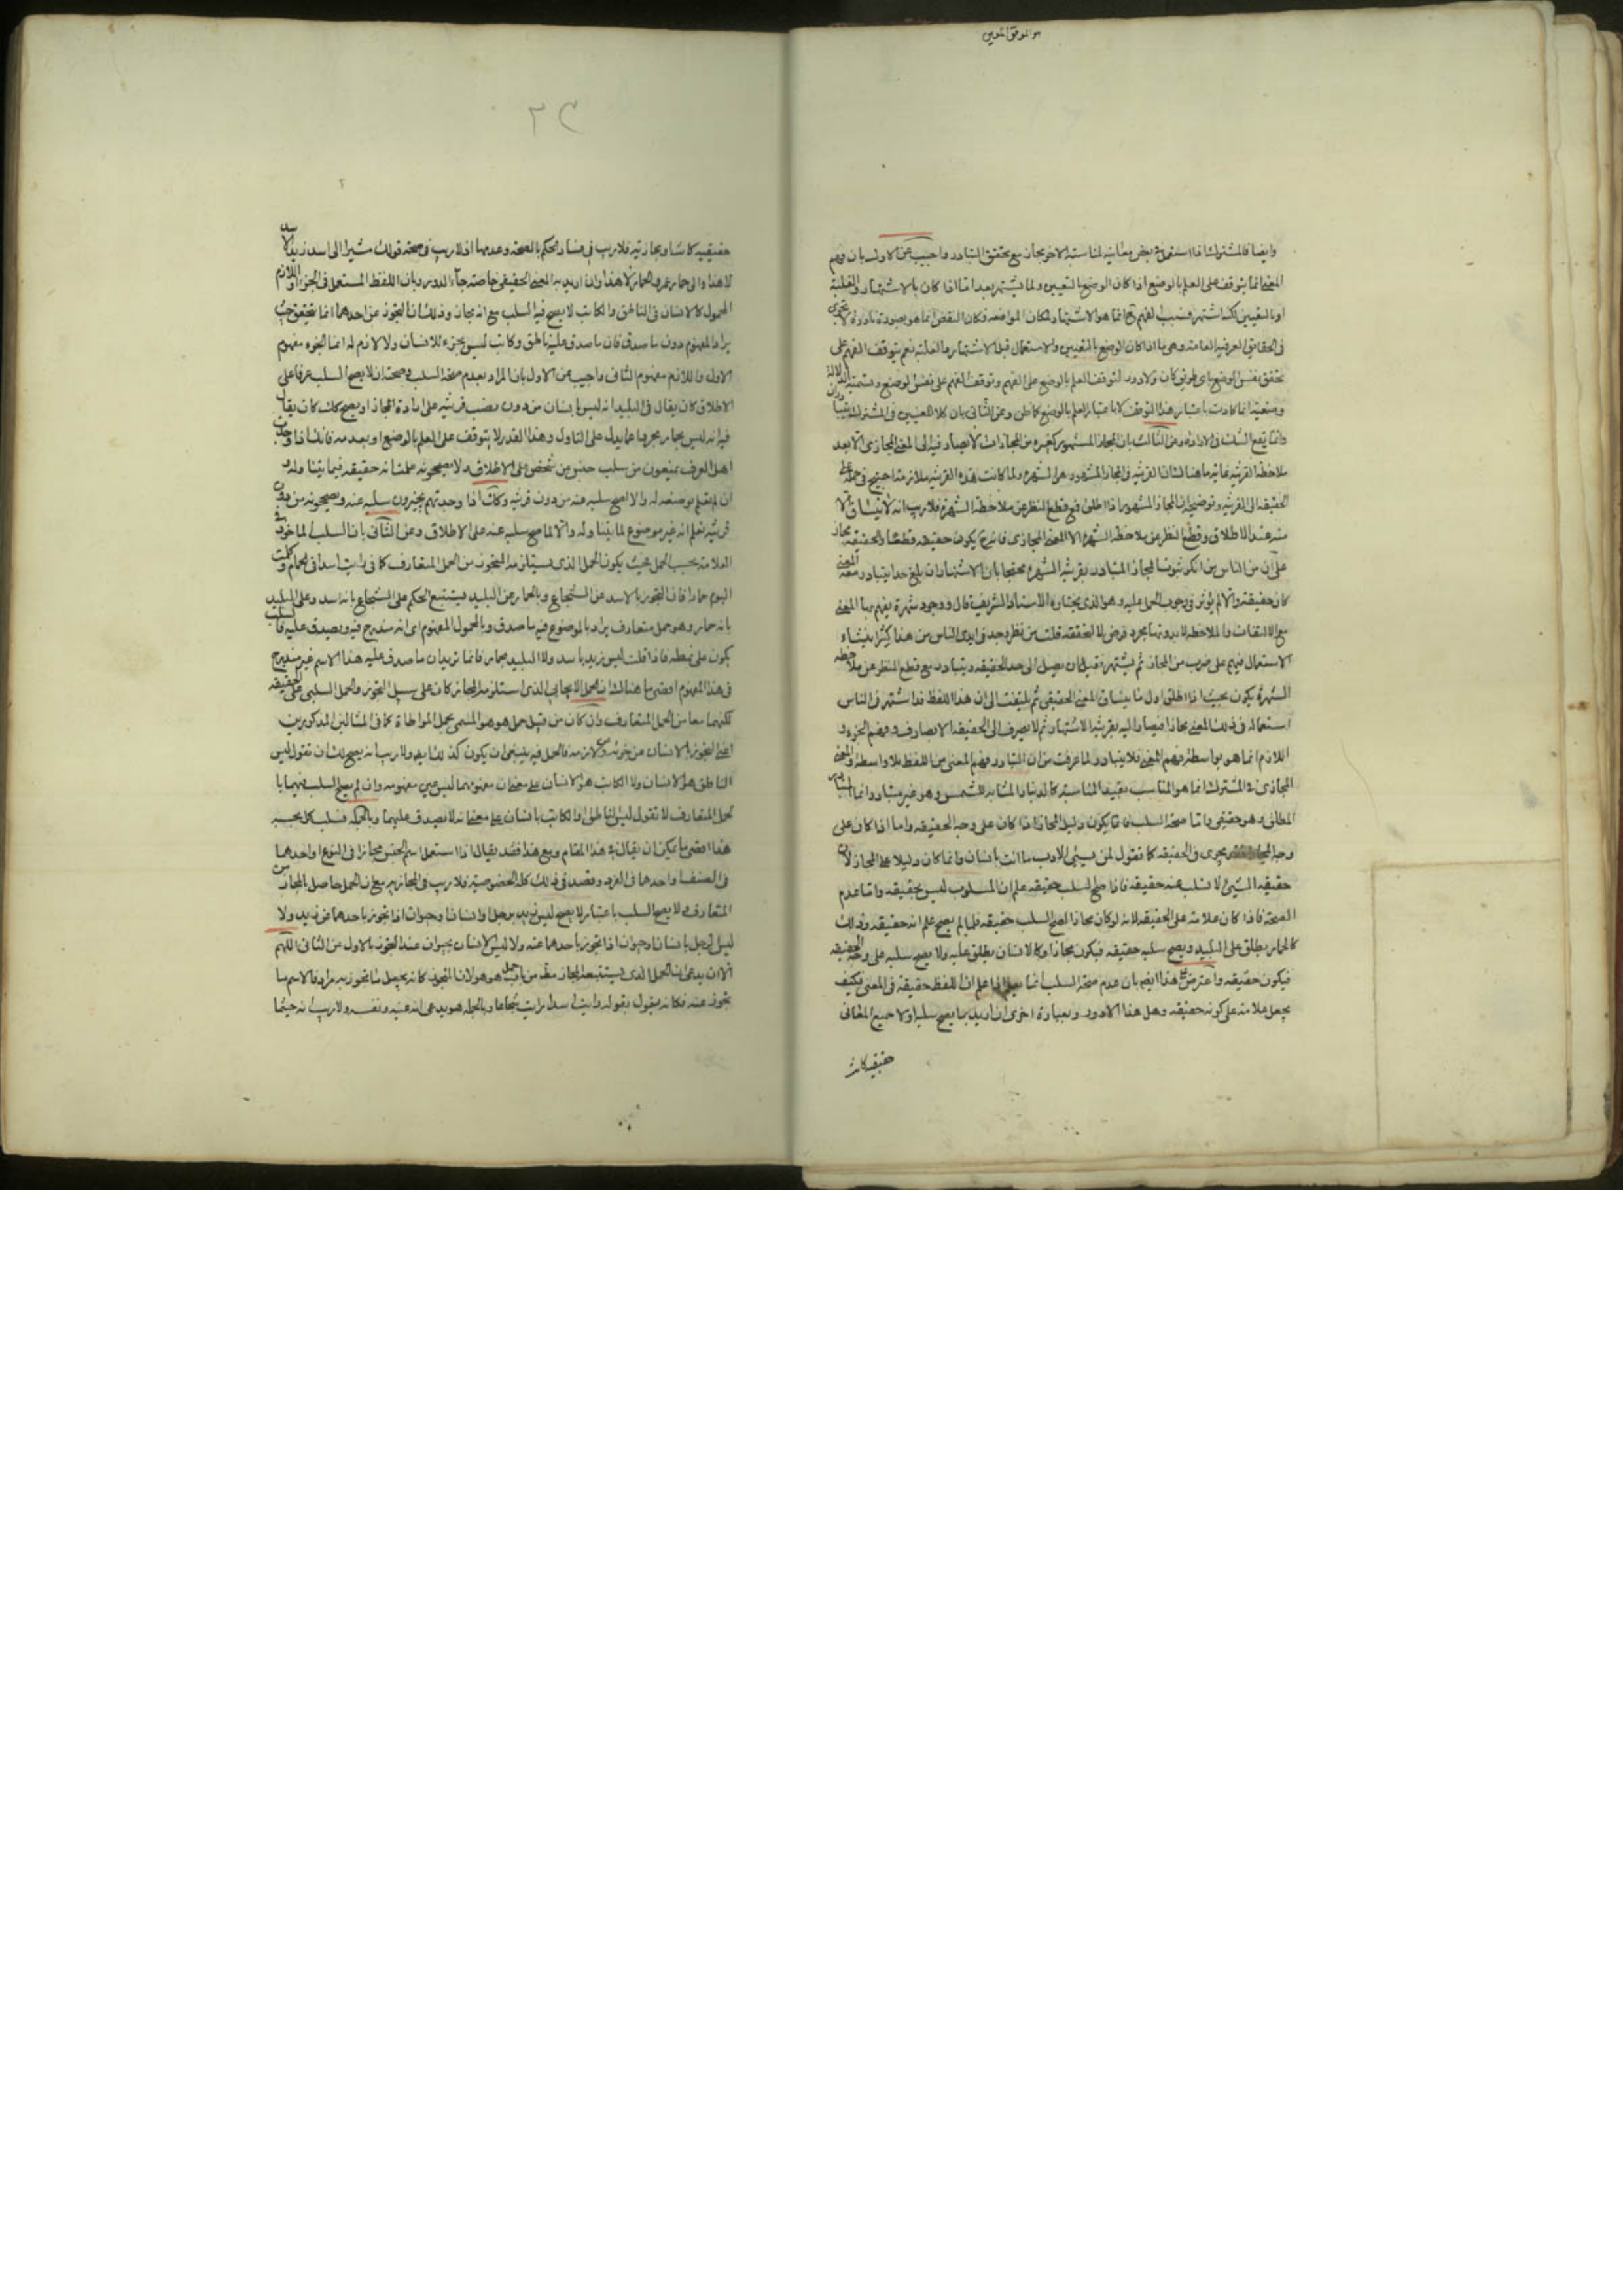 هو الموفق المعين
وايضا فالمشترك اذا استعمل في بعض معانيه لمناسبة الاخر مجاز مع تحقق التبادر واجيب عن الاول بان فهم
المعنى انما يتوقف على العلم بالوضع اذا كان الوضع بالتعيين ولما يشتهر بعد اما اذا كان بالاشتهار والغلبة
او بالتعيين لكنه اشتهر فسبب الفهم ح انما هو الاشتهار ولمكان فكان النقض انما هو بصورة نادرة لا تجرى
في الحقايق العرفية العامة وهي ما اذا كان الوضع بالتعيين والاستعمال قبل الاشتهار والغلبة نعم يتوقف الفهم على
تحقق نفس الوضع باى طريق كان ولا دور لتوقف العلم بالوضع على الفهم وتوقف الفهم على نفس الوضع الدلالة
وضعية انما كانت باعتبار هذا التوقف لا باعتبار العلم بالوضع كما ظن وعن الثاني بان كلا المعنيين في المشترك
وانما يقع الشك في الارادة وعن الثالث بان المجاز المشهور كغيره من المجازات لا يصار فيه الى المعنى المجازى الا بعد
ملاحظة القرينة غاية ما هناك ان القرينة في المجاز المشهور هى الشهرة ولما كانت هذه القرينة ملازمة احتيج في حمله على
الحقيقة الى القرينة وتوضيحه ان المجاز المشهور اذا اطلق فمع قطع النظر عن ملاحظة الشهرة فلا ريب انه لا ينساق الا
منه عند الاطلاق وقطع النظر عن ملاحظة الشهرة الا المعنى المجازى فانه ح يكون حقيقة قطعا والحقيقة مجاز
على ان من الناس من انكر ثبوت المجاز المتبادر بقرينة الشهرة محتجا بان الاشتهار ان بلغ حدا يتبادر معه المعنى
كان حقيقة والا لم يؤثر في وجوب الحمل عليه وهو الذى يختاره الاستاد الشريف قال ووجود شهرة يفهم بها المعنى
مع الالتفات والملاحظة لا بدونها مجرد فرض لا تحقق له قلت من نظر وجد في ايدى الناس من هذا كثيرا ينشاء
الاستعمال فيهم على ضرب من المجاز ثم يشتهر فقبل ان يصل الى حد الحقيقة ويتبادر مع قطع النظر عن ملاحظة
الشهرة يكون بحيث اذا اطلق اول ما ينساق المعنى الحقيقي ثم يلتفت الى ان هذا اللفظ قد اشتهر في الناس
استعماله في ذلك المعنى مجازا فيصار اليه بقرينة الاشتهار ثم لا يصرف الى الحقيقة الا بصارف وفهم الجزء و
اللازم انما هو بواسطة فهم المعنى فلا يتبادر لما عرفت من ان التبادر فهم المعنى من اللفظ بلا واسطة والمعنى
المجازى في المشترك انما هو المناسب بقيد المناسبة كالدينار المشابه للشمس وهو غير متبادر وانما المتبادر
المطلق وهو حقيقي واما صحة السلب فانما يكون دليل المجاز اذا كان على وجه الحقيقة واما اذا كان على
وجه المجاز فقد يجرى في الحقيقة كما تقول لمن يسيئ الادب ما انت بانسان وانما كان دليلا على المجاز لان
حقيقة الشيئ لا تسلب عنه حقيقة فاذا صح السلب حقيقة علم ان المسلوب ليس بحقيقة واما عدم
الصحة فاذا كان علامة على الحقيقة لانه لو كان مجازا لصح السلب حقيقة فلما لم يصح علم انه حقيقة وذلك
كالحمار يطلق على البليد ويصح سلبه حقيقة فيكون مجازا وكالانسان يطلق عليه ولا يصح سلبه على وجه الحقيقة
فيكون حقيقة واعترض على هذا ايضا بان عدم صحة السلب انما اذا علم ان اللفظ حقيقة في المعنى فكيف
يجعل علامة على كونه حقيقة وهل هذا الا دور وبعبارة اخرى ان اريد بما يصح سلبه او لا جميع المعانى
حقيقية كانت
٢
حقيقية كانت او مجازية فلا ريب في فساد الحكم بالصحة وعدمها اذ لا ريب في صحة قولك مشيرا الى اسد زيد الاسد
لا هذا والى حمار عمرو الحمار لا هذا وان اريد به المعنى الحقيقي خاصة جاء الدور وبان اللفظ المستعمل في الجزء او اللازم
المحمول كالانسان في الناطق والكاتب لا يصح فيه السلب مع انه مجاز وذلك ان التجوز عن احدهما انما يتحقق حيث
يراد المفهوم دون ما صدق فان ما صدق عليه ناطق وكاتب ليس بجزء للانسان ولا لازم له انما الجزء مفهوم
الاول واللازم مفهوم الثاني واجيب عن الاول بان المراد بعدم صحة السلب وصحته ان لا يصح السلب عرفا على
الاطلاق كان يقال في البليد انه ليس بانسان من دون نصب قرينة على ارادة المجاز او يصح كك كان يقال
فيه انه ليس بحمار مجردا عما يدل على التاول وهذا القدر لا يتوقف على العلم بالوضع او بعدمه فانك اذا وجدت
اهل العرف يمتنعون من سلب جنس من شخص على الاطلاق ولا يصححونه علمت انه حقيقة فيما يتناوله و
ان لم تعلم بوضعه له والا لصح سلبه عنه من دون قرينة وكك اذا وجدتهم يجيزون سلبه عنه ويصححونه من دون
قرينة تعلم انه غير موضوع لما يتناوله والا لما صح سلبه عنه على الاطلاق وعن الثاني بان السلب المأخوذ في
العلامة بحسب الحمل بحيث يكون الحمل الذى يستلزمه التجوز من الحمل المتعارف كما في رايت اسدا في الحمام وكلمت
اليوم حمارا فان التجوز بالاسد عن الشجاع وبالحمار عن البليد يستتبع الحكم على الشجاع بانه اسد وعلى البليد
بانه حمار وهو حمل متعارف يراد بالموضوع فيه ما صدق وبالمحمول المفهوم اى انه مندرج فيه ويصدق عليه فالسلب
يكون على نمطه فاذا قلت ليس زيد باسد ولا البليد بحمار فانما تريد ان ما صدق عليه هذا الاسم غير مندرج
في هذا المفهوم اقصى ما هناك ان الحمل الايجابي الذى استلزمه المجاز كان على سبيل التجوز والحمل السلبي على الحقيقة
لكنهما معا من الحمل المتعارف وان كان من قبيل حمل هو هو المسمى بحمل المواطاة كما في المثالين المذكورين
اعنى التجوز بالانسان عن جزئه وعن لازمه فالحمل فيه ينبغى ان يكون كذلك ايضا ولا ريب انه يصح لك ان تقول ليس
الناطق هو الانسان ولا الكاتب هو الانسان على معنى ان مفهومهما ليس عين مفهومه وان لم يصح السلب فيهما با
لحمل المتعارف لا تقول ليس الناطق او الكاتب بانسان على معنى انه لا يصدق عليهما وبالجملة فسلب كل بحسبه
هذا اقصى ما يمكن ان يقال في هذا المقام ومع هذا فقد يقال اذا استعمل اسم الجنس مجازا في النوع او احدهما
في الصنف او احدها في الفرد وقصد في ذلك كله الخصوصية فلا ريب في المجازية مع ان الحمل حاصل بالمجاز من
المتعارف ولا يصح السلب باعتباره لا يصح ليس زيد برجل او انسان او حيوان اذا تجوز باحدها عن زيد ولا
ليس الرجل بانسان او حيوان اذا تجوز باحدهما عنه ولا ليس الانسان بحيوان عند التجوز بالاول عن الثاني اللهم
الا ان يدعى ان الحمل الذى يستتبعه المجاز مقدمة من باب حمل هو هو لان المتجوز كانه يجعل ما تجوز به مرادفا لاسم ما
تجوز عنه فكانه يقول بقوله رايت اسدا رايت شجاعا وبالجملة هو يدعى انه عينه ونفسه ولا ريب انه حيثما